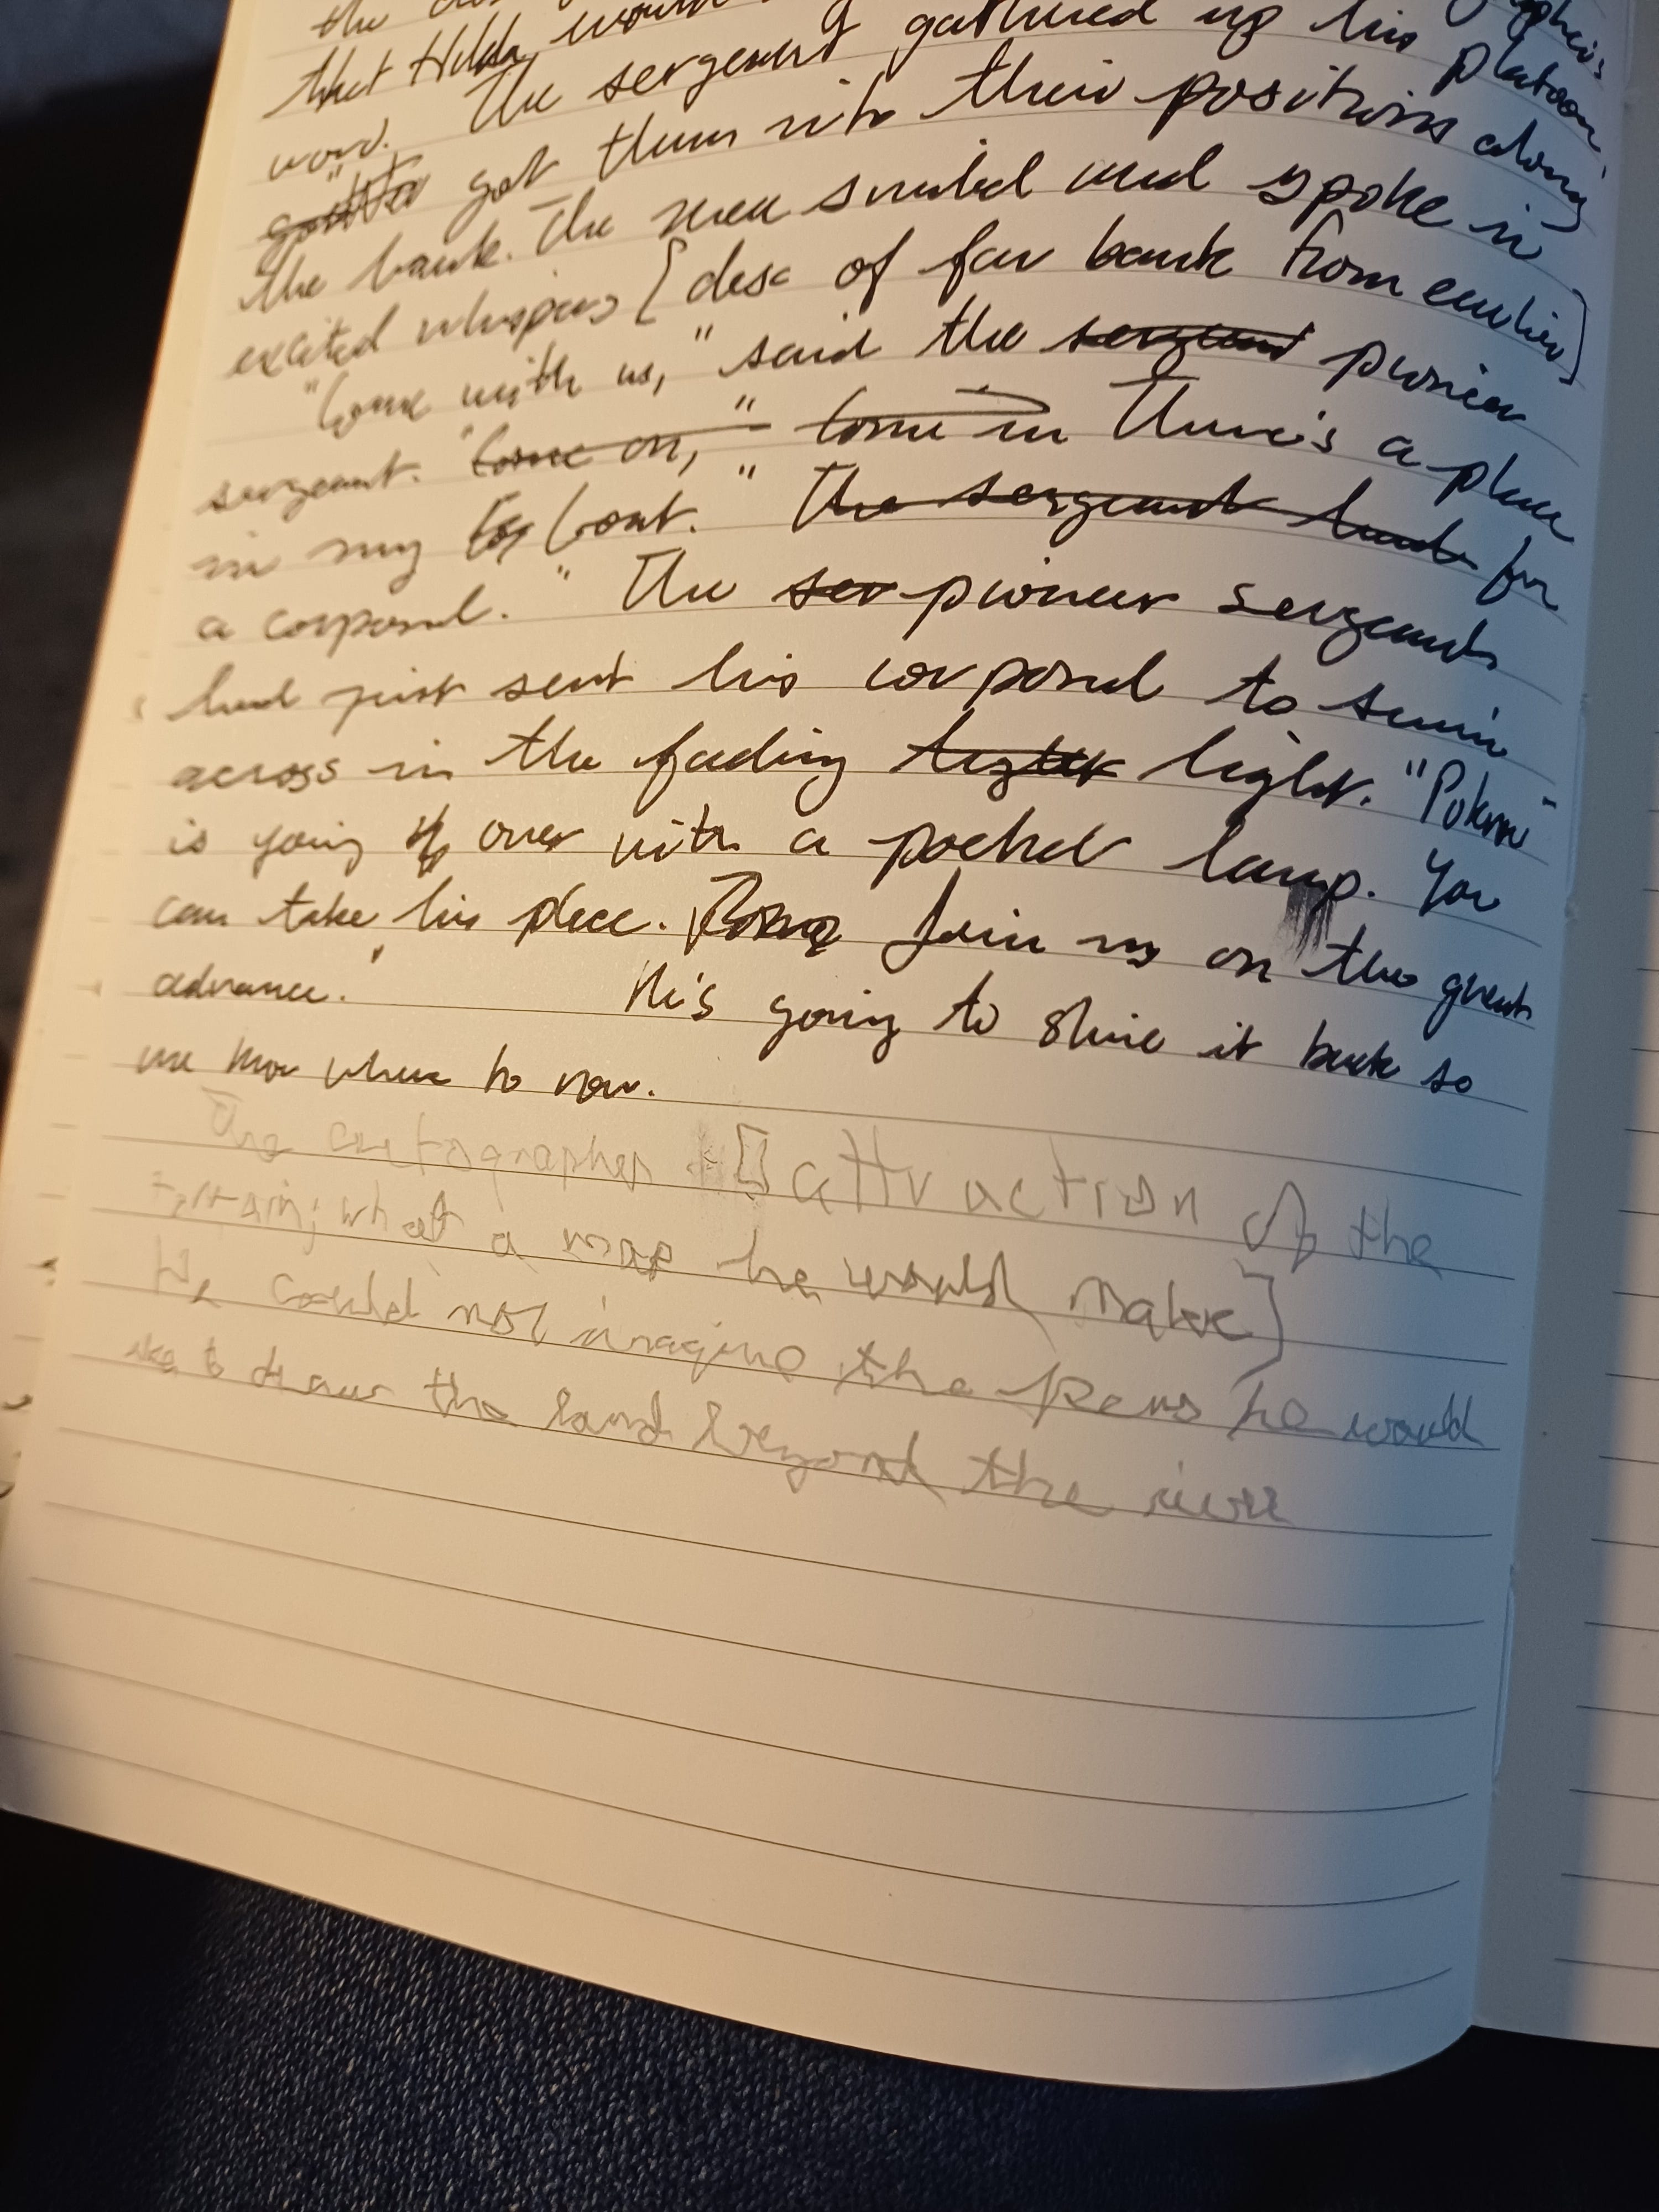 the
that Hilda would
word. The sergeant gathered up his platoon,
got them into their positions along
the bank. The men smiled and spoke in
excited whispers [desc of far bank from earlier]
"Come with us," said the sergeant pioneer
sergeant. "Come on," "Come in There's a place
in my boat." The sergeant had for
a corporal." The ser pioneer sergeant
had just sent his corporal to swim
across in the fading light. "Pokorn
is going over with a pocket lamp. You
can take his place. Join us on the great
advance." He's going to shine it back so
we know where to row.
The cartographer [attraction of the
terrain; what a map he would make]
He could not imagine the pens he would
use to draw the land beyond the river